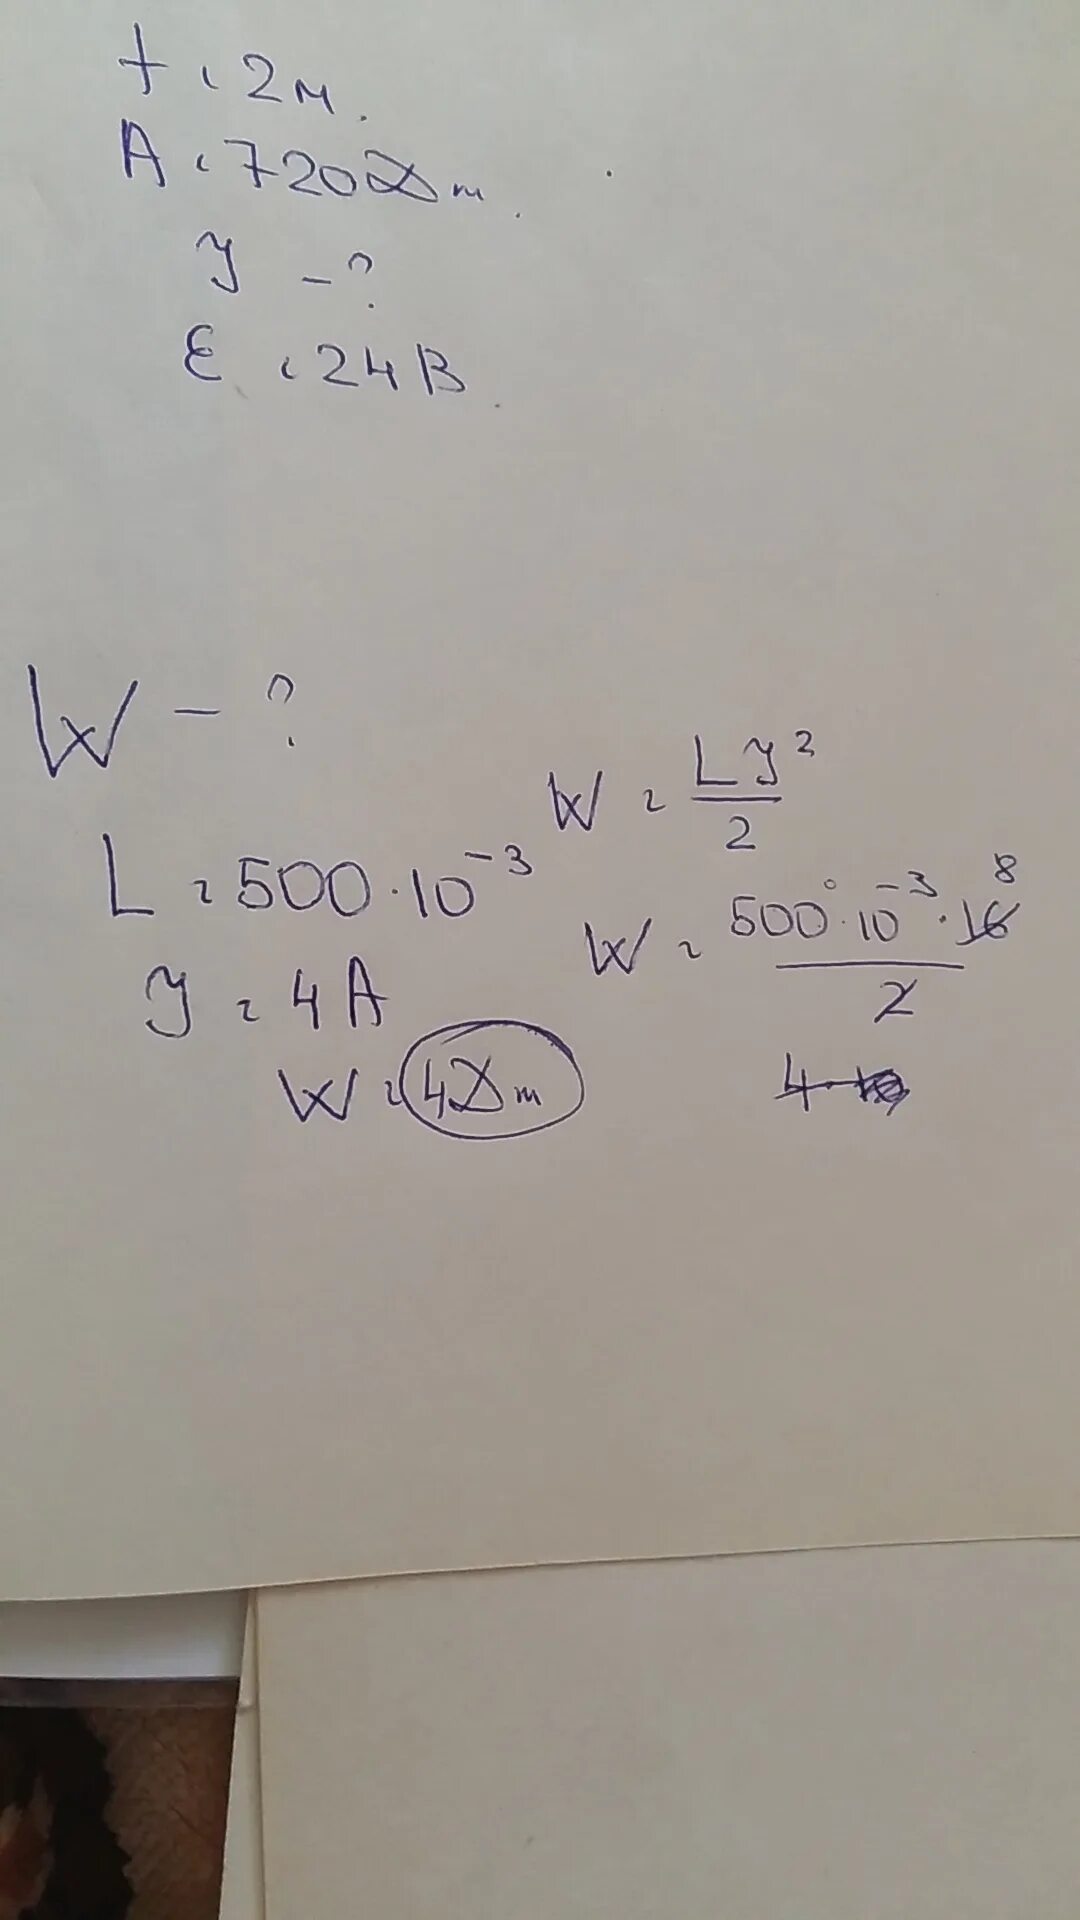 t = 2м.
A = 720 Дж.
J - ?
ε = 24 В.
W - ?
L = 500 · 10⁻³
J = 4 А
W = 4 Дж
W = LJ²/2
W = 500 · 10⁻³ · 16 8 / 2
4